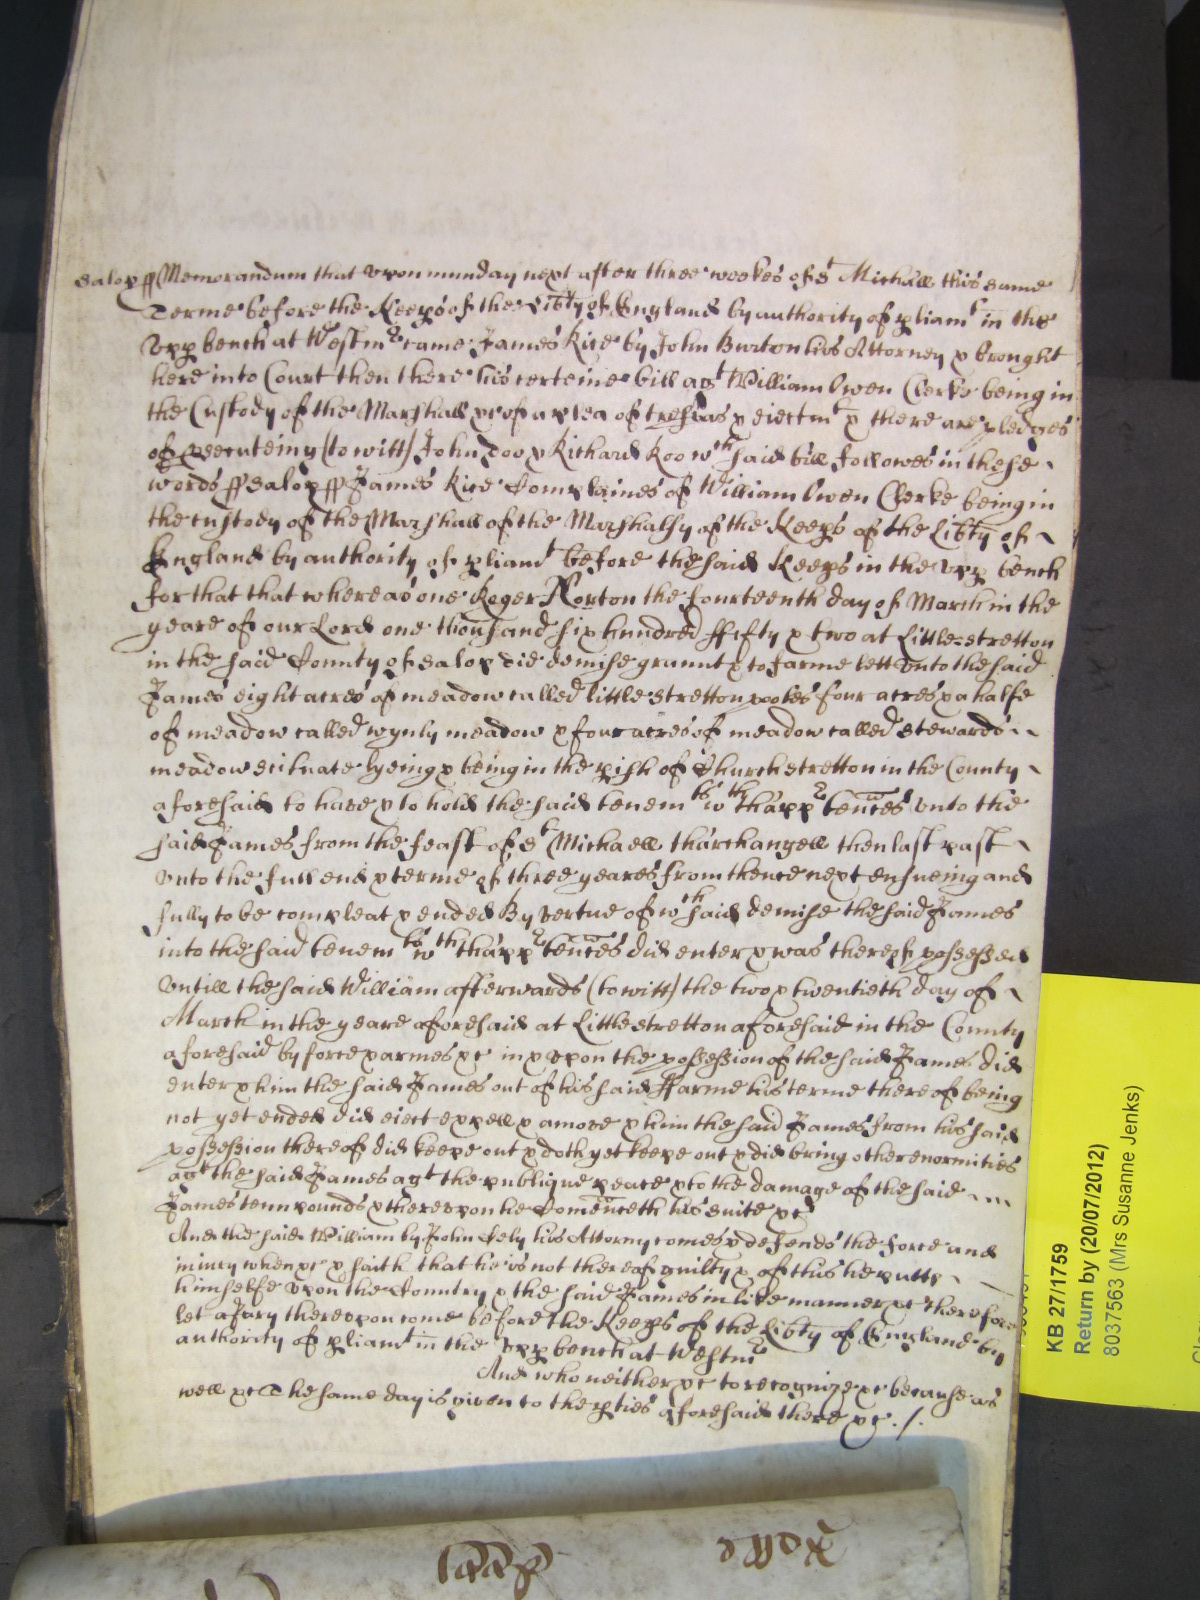 Salop ff Memorandum that upon munday next after three weekes of St Michaell this same
Terme before the Keeps of the Libty of England by authority of pliamt in the
Upp bench at Westmr came James Rice by John Burton his Attorney & brought
here into Court then there his certeine bill agt William Owen Clerke being in
the Custody of the Marshall &c of a plea of trespas & eiectmt & there are pledges
of prosecuteing (to witt) John Doo & Richard Roo wch said bill followes in these
words ff Salop ff James Rice Complaines of William Owen Clerke being in
the custody of the Marshall of the Marshalsy of the Keeps of the Libty of
England by authority of pliamt before the said Keeps in the Upp bench
for that that whereas one Roger Norton the fourteenth day of March in the
yeare of our Lord one thousand six hundred ffifty & two at Little=stretton
in the said County of Salop did demise graunt & to farme lett unto the said
James eight acres of meadow called little stretton pooles four acres & a halfe
of meadow called wynly meadow & four acres of meadow called stewards
meadow scituate lyeing & being in the pish of Churchstretton in the County
aforesaid to have & to hold the said tenemts wth thapprtences unto the
said James from the feast of St Michaell tharchangell then last past
unto the full end & terme of three yeares from thence next ensueing and
fully to be compleat & ended By vertue of wch said demise the said James
into the said tenemts wth thapprtences did enter & was thereof possessed
Untill the said William afterwards (to witt) the two & twentieth day of
March in the yeare aforesaid at Little stretton aforesaid in the County
aforesaid by force & armes &c in & upon the possession of the said James did
enter & him the said James out of his said ffarme his terme thereof being
not yet ended did eiect expell & amove & him the said James from his said
possession thereof did keepe out & doth yet keepe out & did bring other enormities
agt the said James agt the publique peace & to the damage of the said
James tenn pounds & thereupon he Comenceth his suite &c
And the said William by John Fely his Attorny comes & defends the force and
iniury when &c & saith that he is not thereof guilty & of this he putts
himselfe Upon the Country & the said James in like manner &c Therefore
let a Jury thereupon come before the Keeps of the Libty of England by
authority of pliamt in the Upp bench at Westmr
And who neither &c to recognize &c because as
well &c The same day is given to the pties aforesaid there &c ./.
KB 27/1759
Return by (20/07/2012)
8037563 (Mrs Susanne Jenks)